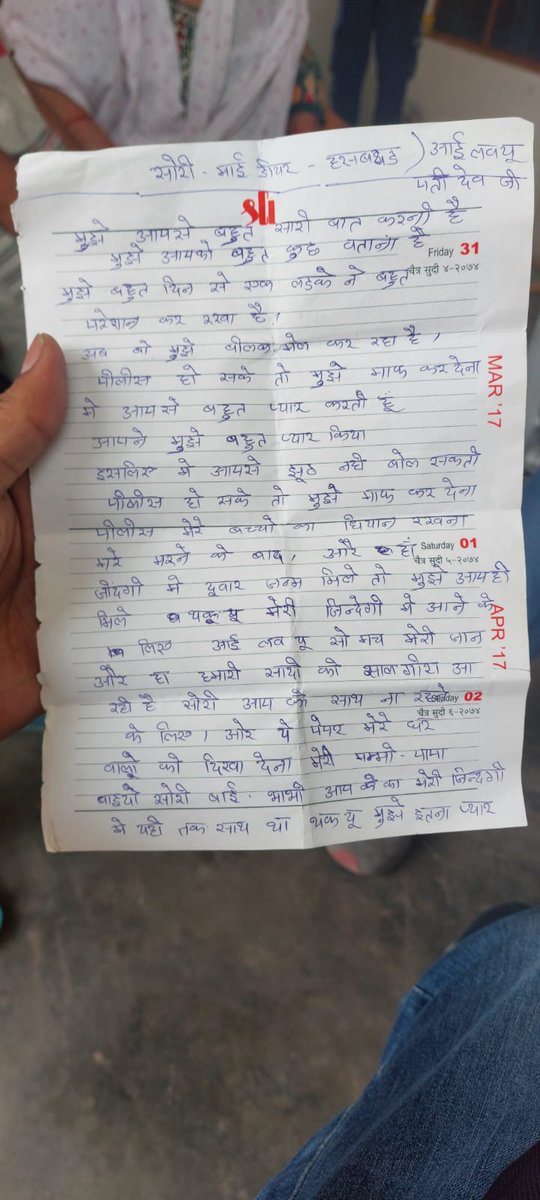 सोरी - माई डीयर - हसबेण्ड ) आई लव यू
पती देव जी
sli
मुझे आपसे बहुत सारी बात करनी है
मुझे आपको बहुत कुछ बताना है
Friday 31
चैत्र सुदी ४-२०७४
मुझे बहुत दिन से एक लडके ने बहुत
परेशान कर रखा है,
अब वो मुझे बीलक मेल कर रहा है,
MAR '17
पीलीस हो सके तो मुझे माफ कर देना
मे आपसे बहुत प्यार करती हूं
आपने मुझे बहुत प्यार किया
इसलिए मे आपसे झूठ नही बोल सकती
पीलीस हो सके तो मुझे माफ कर देना
पीलीस मेरे बच्चो का धियान रखना
मेरे मरने के बाद, और हाँ
Saturday 01
चैत्र सुदी ५-२०७४
जींदगी मे दुवार जन्म मिले तो मुझे आपही
मिले थक यू मेरी जिन्देगी मे आने के
APR '17
लिए आई लव यू सो मच मेरी जान
और हा हमारी सादी की साल गीरा आ
रही है सोरी आप के साथ ना रहने
02
चैत्र सुदी ६-२०७४
के लिए, ओर ये पेपर मेरे घर
वालो को दिखा देना मेरी मम्मी-पापा
बाइयो सोरी बाई-भाभी आप का मेरी जिन्दगी
मे यही तक साथ था थक यू मुझे इतना प्यार